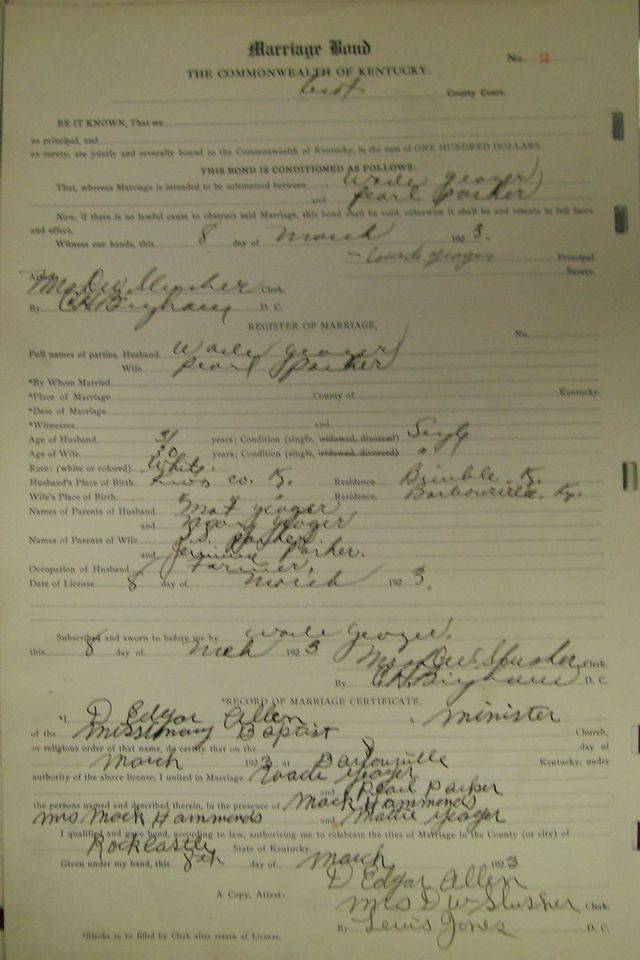 Marriage Bond
No. 12
THE COMMONWEALTH OF KENTUCKY.
County Court.
BE IT KNOWN, That we
as principal, and
as surety, are jointly and severally bound to the Commonwealth of Kentucky, in the sum of ONE HUNDRED DOLLARS.
THIS BOND IS CONDITIONED AS FOLLOWS:
That, whereas Marriage is intended to be solemnized between Wade Yeager
and Pearl Parker
Now, if there is no lawful cause to obstruct said Marriage, this bond shall be void, otherwise it shall be and remain in full force
and effect,
Witness our hands, this 8 day of March 1923.
Wade Yeager Principal.
Surety.
Attest: Mrs D W Slusher Clerk.
By C H Bingham D. C.
REGISTER OF MARRIAGE,
No.
Full names of parties, Husband Wade Yeager
Wife Pearl Parker
*By Whom Married
*Place of Marriage County of Kentucky.
*Date of Marriage
*Witnesses and
Age of Husband 31 years; Condition (single, widowed, divorced)
Age of Wife 30 years; Condition (single, widowed, divorced) "
Race: (white or colored) White.
Husband's Place of Birth Knox co. Ky. Residence Brimble, Ky.
Wife's Place of Birth " " " Residence Barbourville, Ky.
Names of Parents of Husband Mat Yeager
and Yeager
Names of Parents of Wife Parker
and Parker.
Occupation of Husband Farmer.
Date of License 8 day of March 1923.
Subscribed and sworn to before me by Wade Yeager.
this 8 day of Mch 1923 Mrs D W Slusher Clerk
By C H Bingham D. C.
*RECORD OF MARRIAGE CERTIFICATE.
*I, D Edgar Allen, Minister
of the Missionary Baptist Church,
or religious order of that name, do certify that on the 8 day of
March 1923 at Barbourville Kentucky, under
authority of the above license, I united in Marriage Wade Yeager
and Pearl Parker
the persons named and described therein, in the presence of Mack Hammonds
Mrs Mack Hammonds and Mattie Yeager
I qualified and gave bond, according to law, authorizing me to celebrate the rites of Marriage in the County (or city) of
Rockcastle State of Kentucky.
Given under my hand, this 8th day of March 1923
D Edgar Allen
A Copy, Attest: Mrs D W Slusher Clerk.
By Lewis Jones D. C.
*Blanks to be filled by Clerk after return of License.